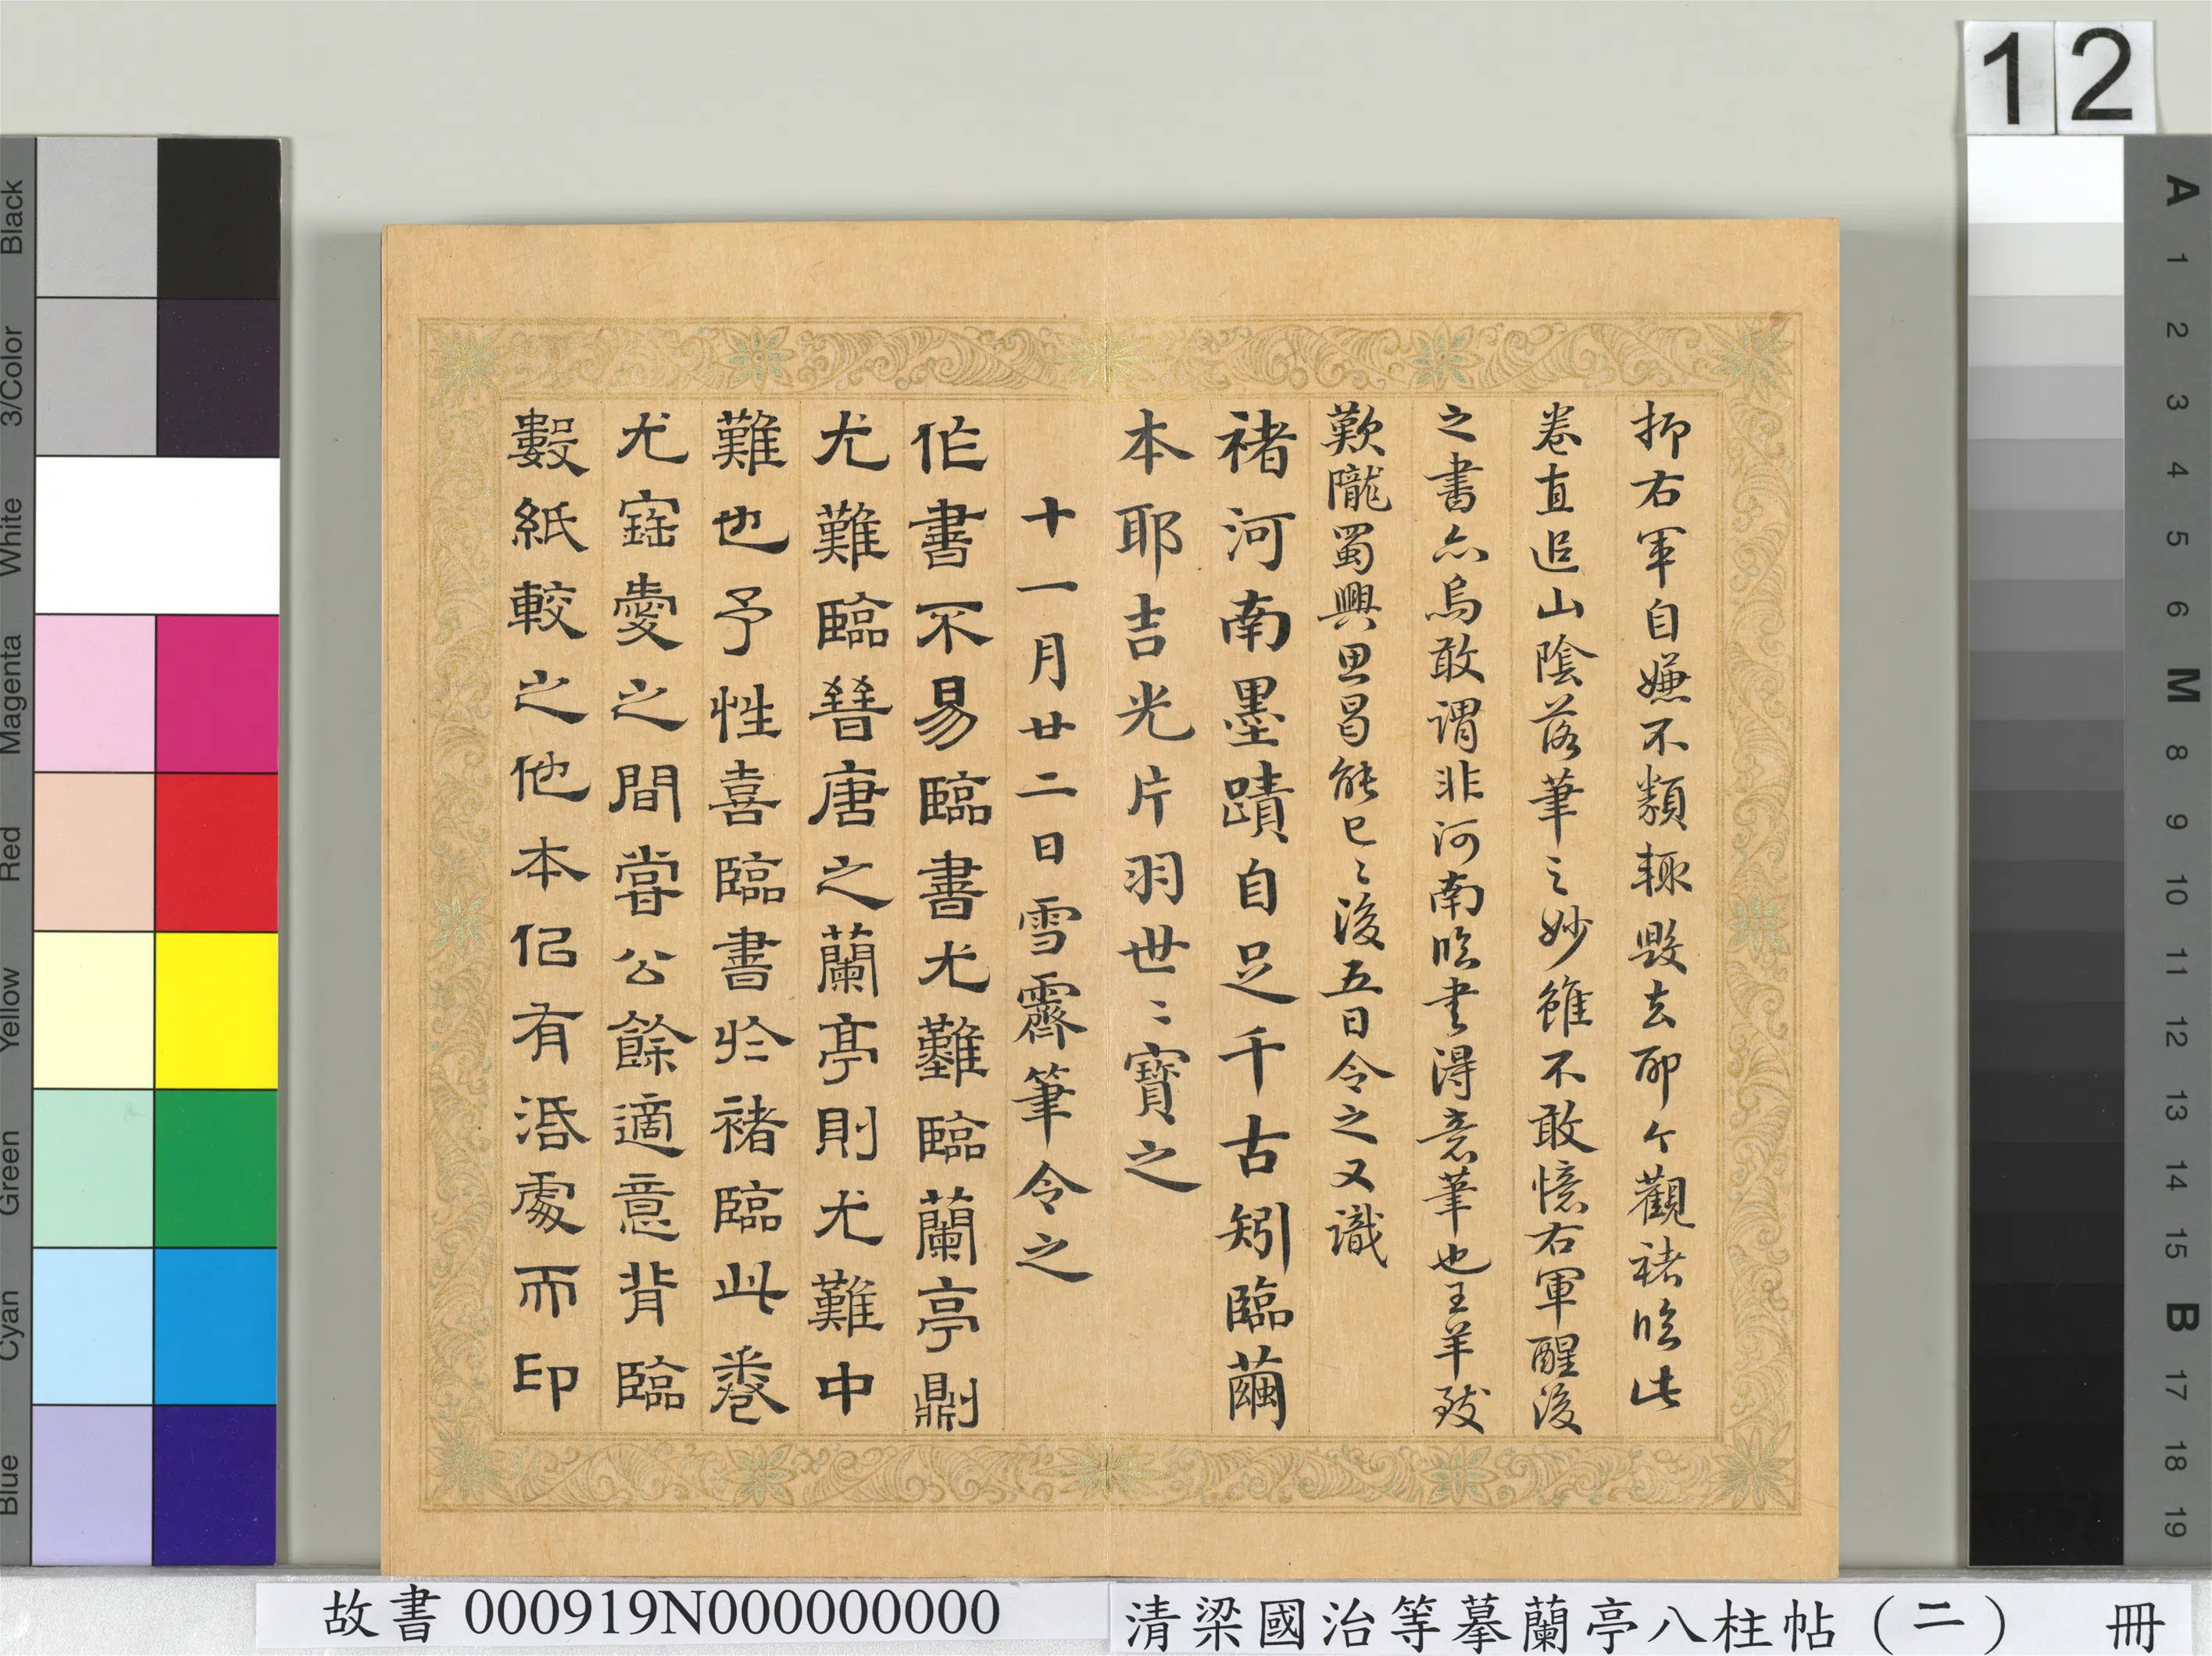 12
抑右軍自嫌不類輒毀去耶今觀褚臨此
卷直追山陰落筆之妙雖不敢憶右軍醒後
之書亦烏敢謂非河南臨書得意筆也王羊致
歎隴蜀興思曷能已〻後五日令之又識
褚河南墨蹟自足千古矧臨繭
本耶吉光片羽世〻寶之
十一月廿二日雪霽筆令之
作書不易臨書尤難臨蘭亭則
尤難臨晉唐之蘭亭則尤難中
難也予性喜臨書於褚臨此卷
尤寶愛之間嘗公餘適意背臨
數紙較之他本似有活處而印
Black
3/Color
White
Magenta
Red
Yellow
Green
Cyan
Blue
A
1
2
3
4
5
6
M
8
9
10
11
12
13
14
15
B
17
18
19
故書 000919N000000000
清梁國治等摹蘭亭八柱帖（二） 冊